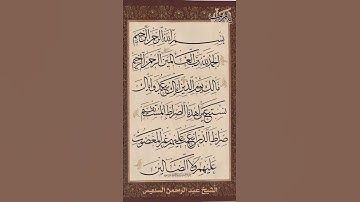 بسم الله الرحمن الرحيم
الحمد لله رب العالمين الرحمن الرحيم
مالك يوم الدين إياك نعبد وإياك
نستعين اهدنا الصراط المستقيم
صراط الذين أنعمت عليهم غير المغضوب
عليهم ولا الضالين
الشيخ عبد الرحمن السديس